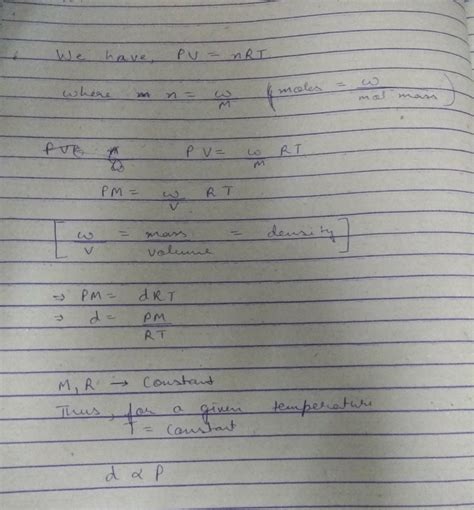 We have, PV = nRT
where n = w/M (moles = w/mol mass)
PV = w/M RT
PM = w/V RT
[w/V = mass/volume = density]
⇒ PM = dRT
⇒ d = PM/RT
M, R → Constant
Thus, for a given temperature
T = constant
d ∝ P